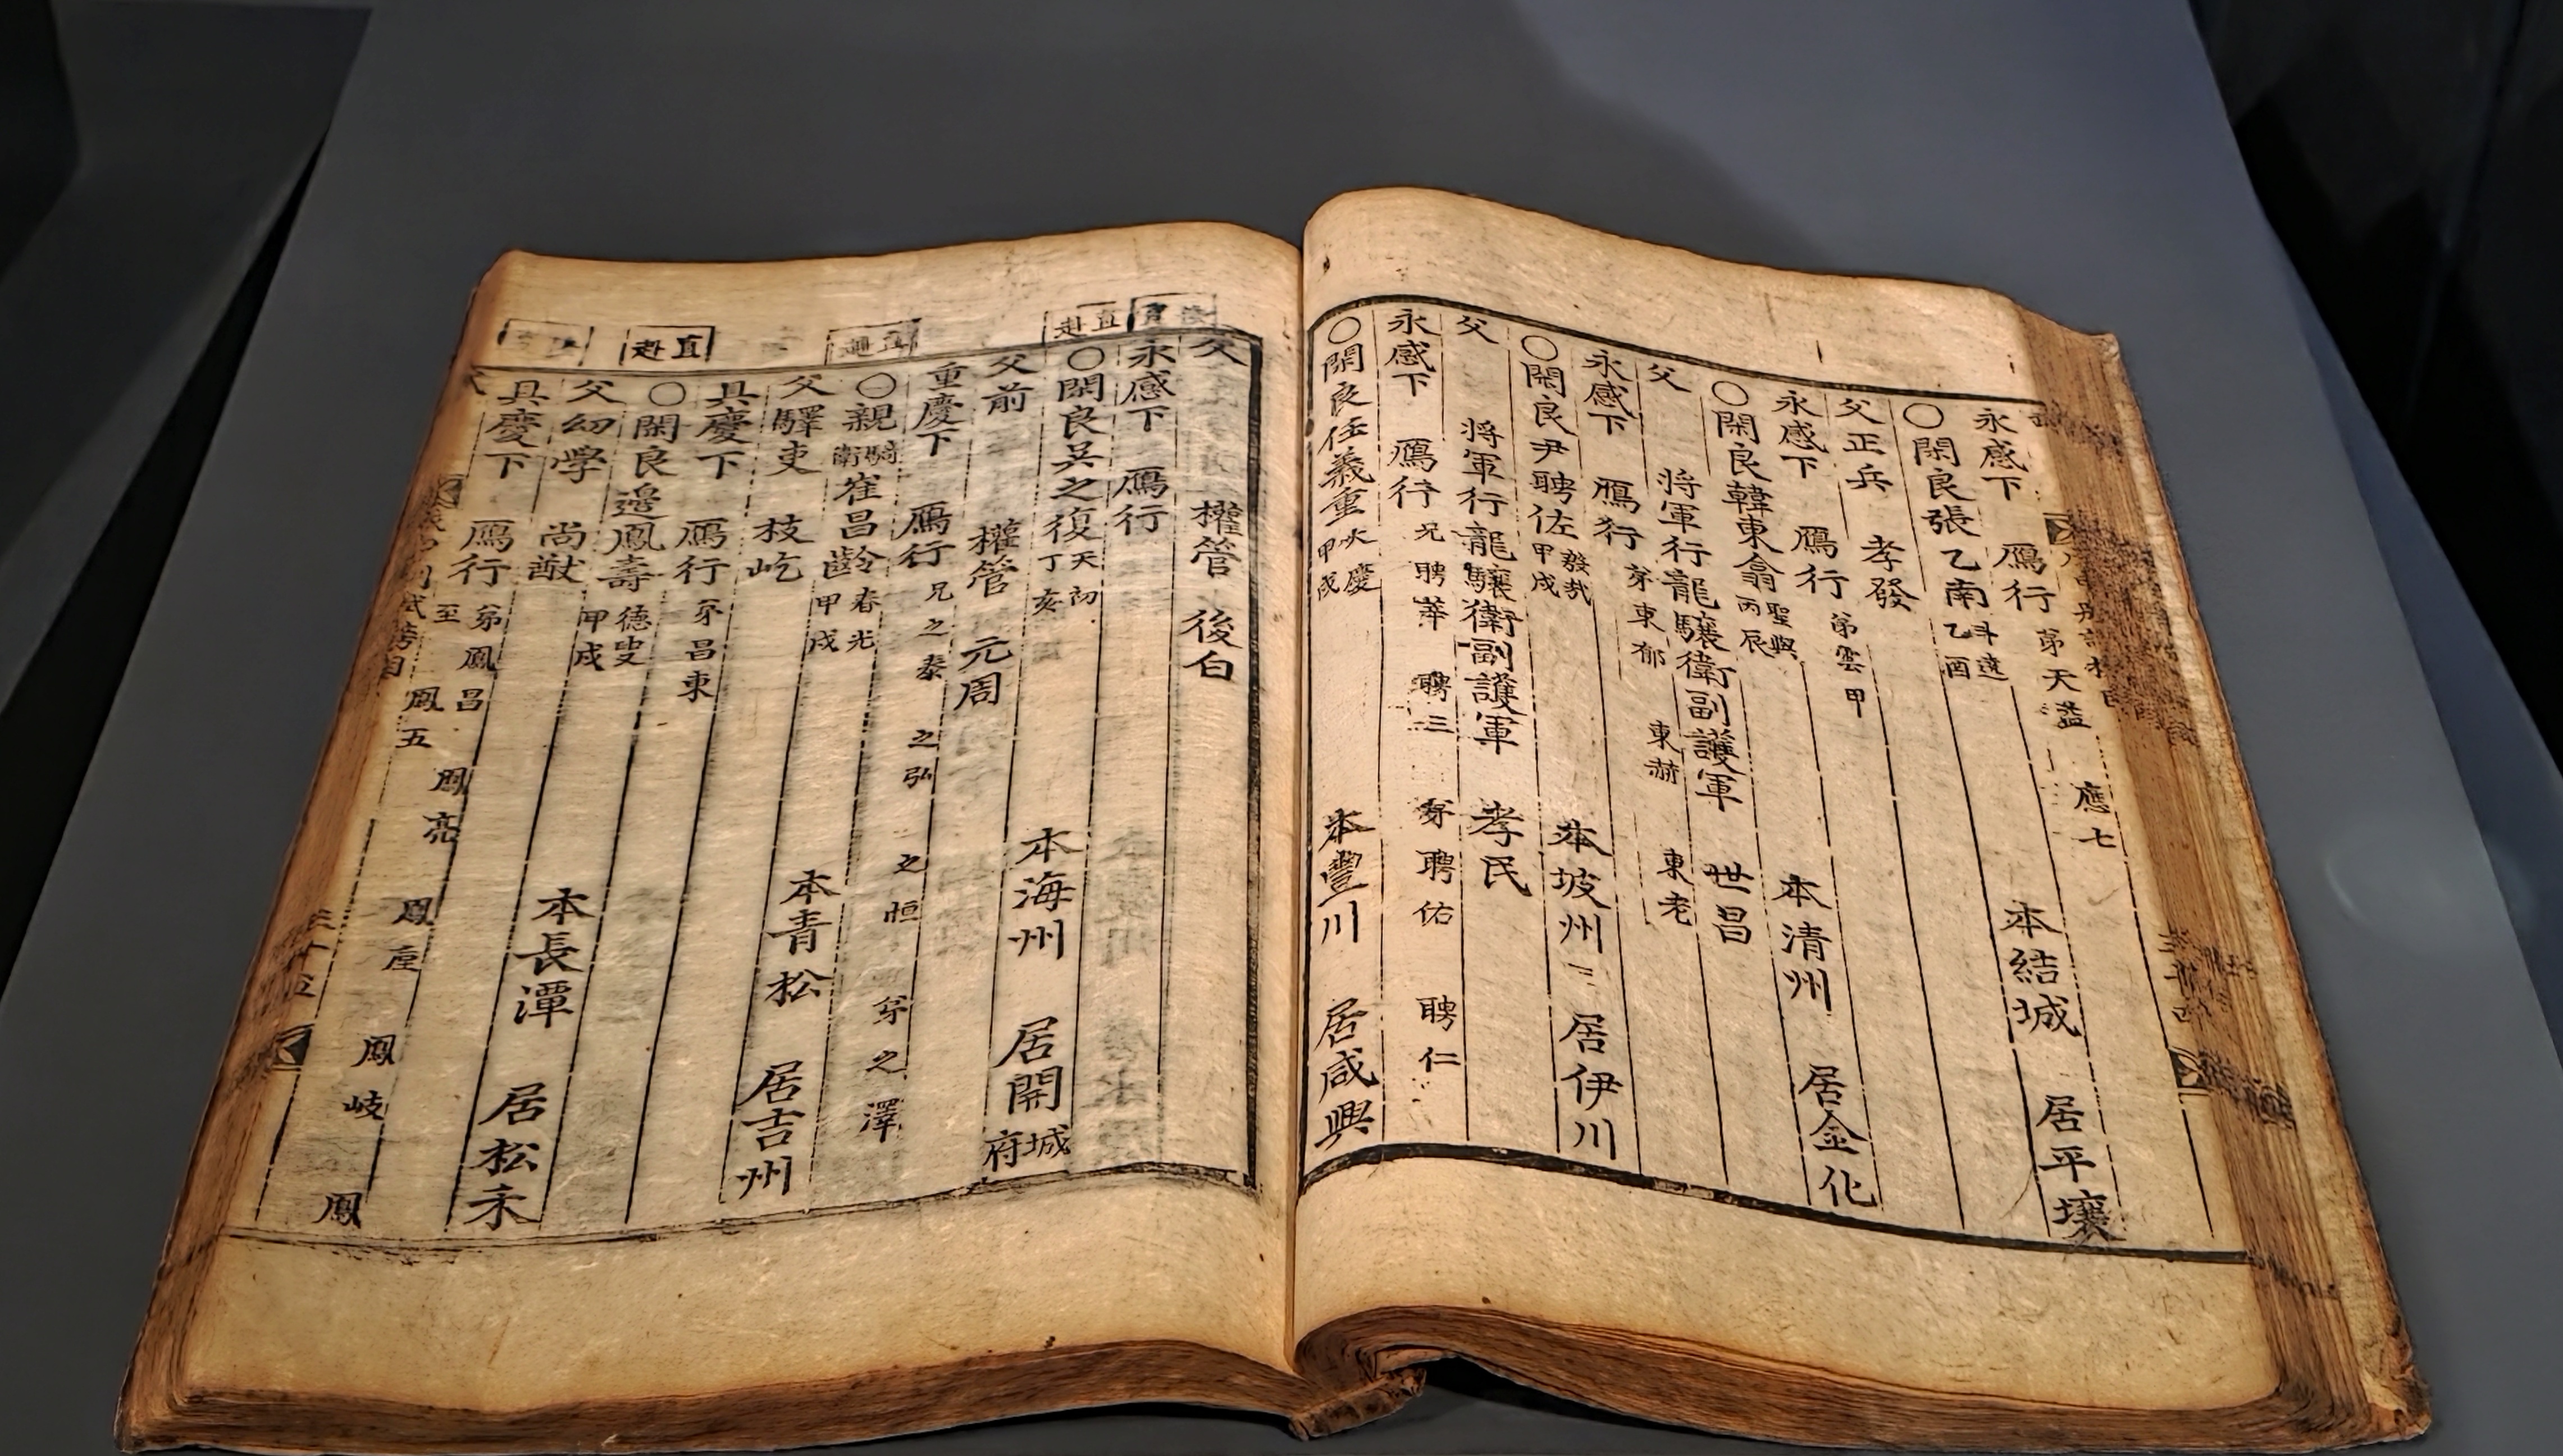 應七
永感下 鴈行 苐天益
○閑良張乙南 斗遠 乙酉 本結城 居平壤
父正兵 孝發
永感下 鴈行 苐雲甲
○閑良韓東翕 聖興 丙辰 本清州 居金化
父 將軍行龍驤衛副護軍 世昌
永感下 鴈行 苐東郁 東赫 東老
○閑良尹聘佐 發哉 甲戌 本坡州 居伊川
父 將軍行龍驤衛副護軍 孝民
永感下 鴈行 兄聘莘 聘三 苐聘佑 聘仁
○閑良任義重 大慶 甲戌 本豐川 居咸興
父 權管 後白
永感下 鴈行
直赴
○閑良吳之復 天初 丁亥 本海州 居開城府
父前 權管 元周
重慶下 鴈行 兄之泰 之弘 之恒 苐之澤
直赴
○親騎衛崔昌齡 春光 甲戌 本青松 居吉州
父驛吏 枝屹
具慶下 鴈行 苐昌東
直赴
○閑良邉鳳壽 德叟 甲戌 本長潭 居松禾
父幼學 尚猷
具慶下 鴈行 苐鳳昌 鳳亮 鳳岐 鳳
至 鳳五